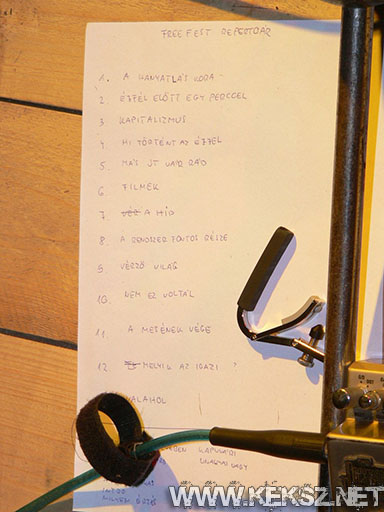 FREE FEST REPERTOÁR
1. A HANYATLÁS KORA
2. ÉJFÉL ELŐTT EGY PERCCEL
3. KAPITALIZMUS
4. MI TÖRTÉNT AZ ÉJJEL
5. MÁS ÚT VÁR RÁD
6. FILMEK
7. A HÍD
8. A RENDSZER FONTOS RÉSZE
9. VÉRZŐ VILÁG
10. NEM EZ VOLTÁL
11. A MESÉNEK VÉGE
12. MELYIK AZ IGAZI ?
VALAHOL
WWW.KEKSZ.NET